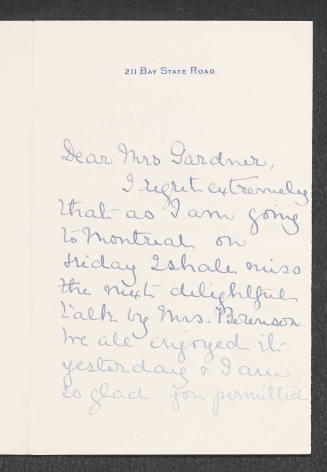 211 BAY STATE ROAD.
Dear Mrs. Gardner,
I regret extremely
that as I am going
to Montreal on
Friday I shall miss
the next delightful
talk by Mrs. Berenson.
We all enjoyed it
yesterday & I am
so glad you permitted